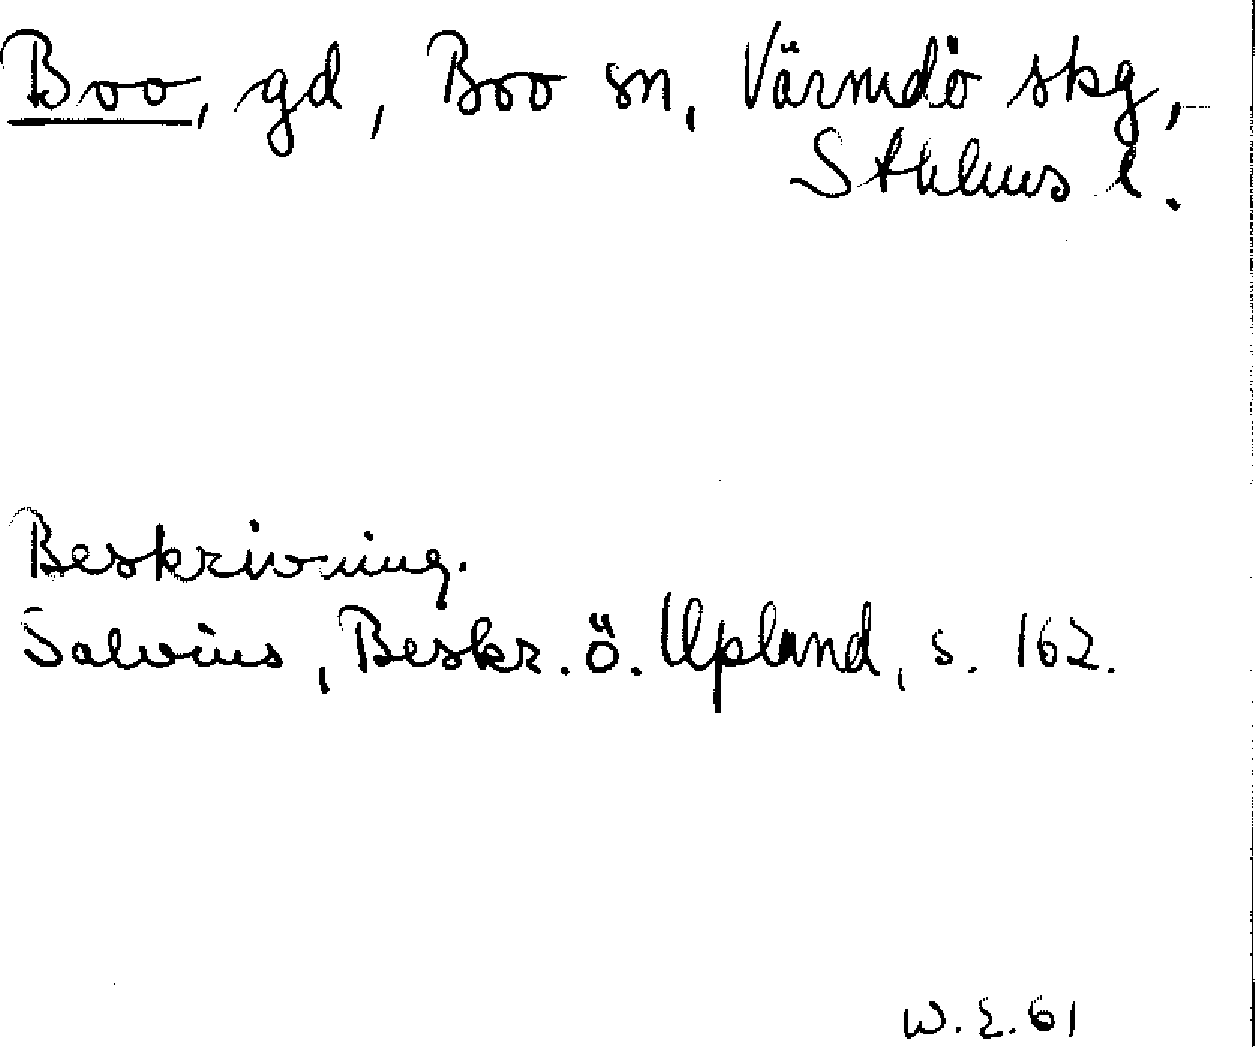 Boo, gd, Boo sn, Värmdö skg,
Sthlms l.
Beskrivning.
Salvius, Beskr. ö. Upland, s. 162.
W. E. 61